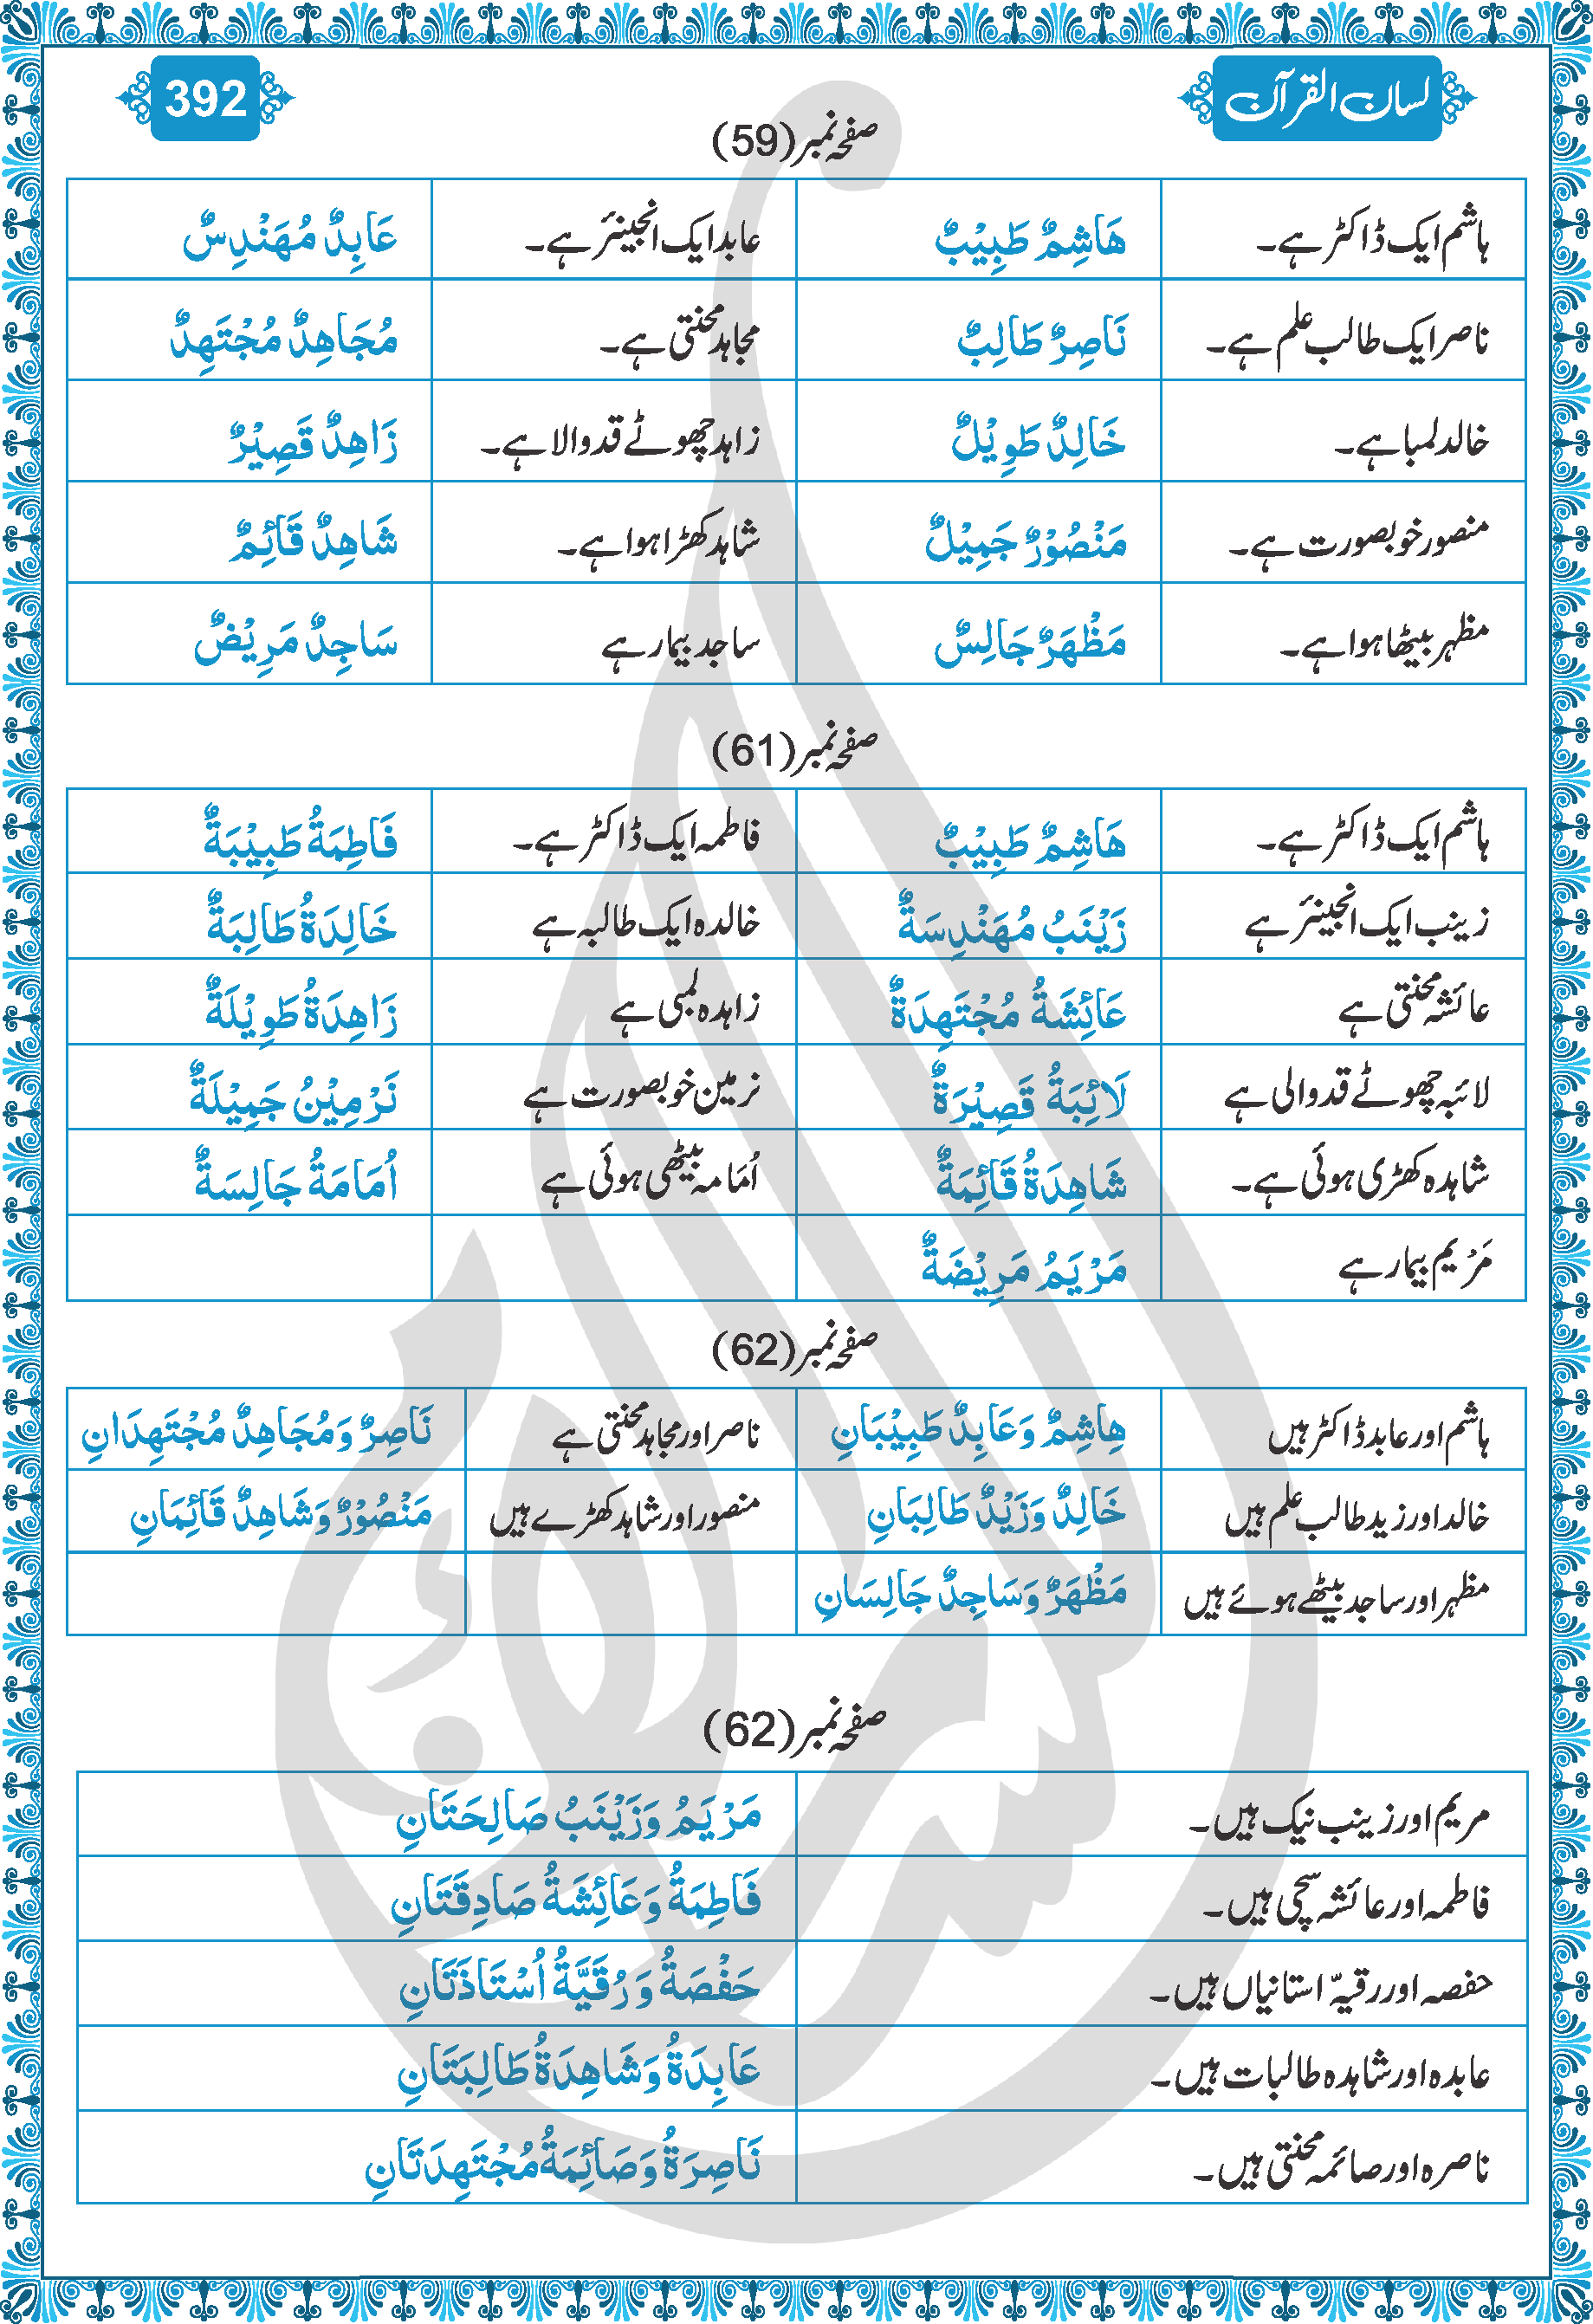 لسان القرآن
392
صفحہ نمبر (59)
ہاشم ایک ڈاکٹر ہے۔ هَاشِمٌ طَبِيْبٌ عابد ایک انجینئر ہے۔ عَابِدٌ مُهَنْدِسٌ
ناصر ایک طالب علم ہے۔ نَاصِرٌ طَالِبٌ مجاہد محنتی ہے۔ مُجَاهِدٌ مُجْتَهِدٌ
خالد لمبا ہے۔ خَالِدٌ طَوِيْلٌ زاہد چھوٹے قد والا ہے۔ زَاهِدٌ قَصِيْرٌ
منصور خوبصورت ہے۔ مَنْصُوْرٌ جَمِيْلٌ شاہد کھڑا ہوا ہے۔ شَاهِدٌ قَائِمٌ
مظہر بیٹھا ہوا ہے۔ مَظْهَرٌ جَالِسٌ ساجد بیمار ہے سَاجِدٌ مَرِيْضٌ
صفحہ نمبر (61)
ہاشم ایک ڈاکٹر ہے۔ هَاشِمٌ طَبِيْبٌ فاطمہ ایک ڈاکٹر ہے۔ فَاطِمَةُ طَبِيْبَةٌ
زینب ایک انجینئر ہے زَيْنَبُ مُهَنْدِسَةٌ خالدہ ایک طالبہ ہے خَالِدَةُ طَالِبَةٌ
عائشہ محنتی ہے عَائِشَةُ مُجْتَهِدَةٌ زاہدہ لمبی ہے زَاهِدَةُ طَوِيْلَةٌ
لائبہ چھوٹے قد والی ہے لَائِبَةُ قَصِيْرَةٌ نرمین خوبصورت ہے نَرْمِيْنُ جَمِيْلَةٌ
شاہدہ کھڑی ہوئی ہے۔ شَاهِدَةُ قَائِمَةٌ اُمَامہ بیٹھی ہوئی ہے اُمَامَةُ جَالِسَةٌ
مَرْیم بیمار ہے مَرْيَمُ مَرِيْضَةٌ
صفحہ نمبر (62)
ہاشم اور عابد ڈاکٹر ہیں هِاشِمٌ وَعَابِدٌ طَبِيْبَانِ ناصر اور مجاہد محنتی ہے نَاصِرٌ وَمُجَاهِدٌ مُجْتَهِدَانِ
خالد اور زید طالب علم ہیں خَالِدٌ وَزَيْدٌ طَالِبَانِ منصور اور شاہد کھڑے ہیں مَنْصُوْرٌ وَشَاهِدٌ قَائِمَانِ
مظہر اور ساجد بیٹھے ہوئے ہیں مَظْهَرٌ وَسَاجِدٌ جَالِسَانِ
صفحہ نمبر (62)
مریم اور زینب نیک ہیں۔ مَرْيَمُ وَزَيْنَبُ صَالِحَتَانِ
فاطمہ اور عائشہ سچی ہیں۔ فَاطِمَةُ وَعَائِشَةُ صَادِقَتَانِ
حفصہ اور رقیہّ استانیاں ہیں۔ حَفْصَةُ وَرُقَيَّةُ اُسْتَاذَتَانِ
عابدہ اور شاہدہ طالبات ہیں۔ عَابِدَةُ وَشَاهِدَةُ طَالِبَتَانِ
ناصرہ اور صائمہ محنتی ہیں۔ نَاصِرَةُ وَصَائِمَةُ مُجْتَهِدَتَانِ